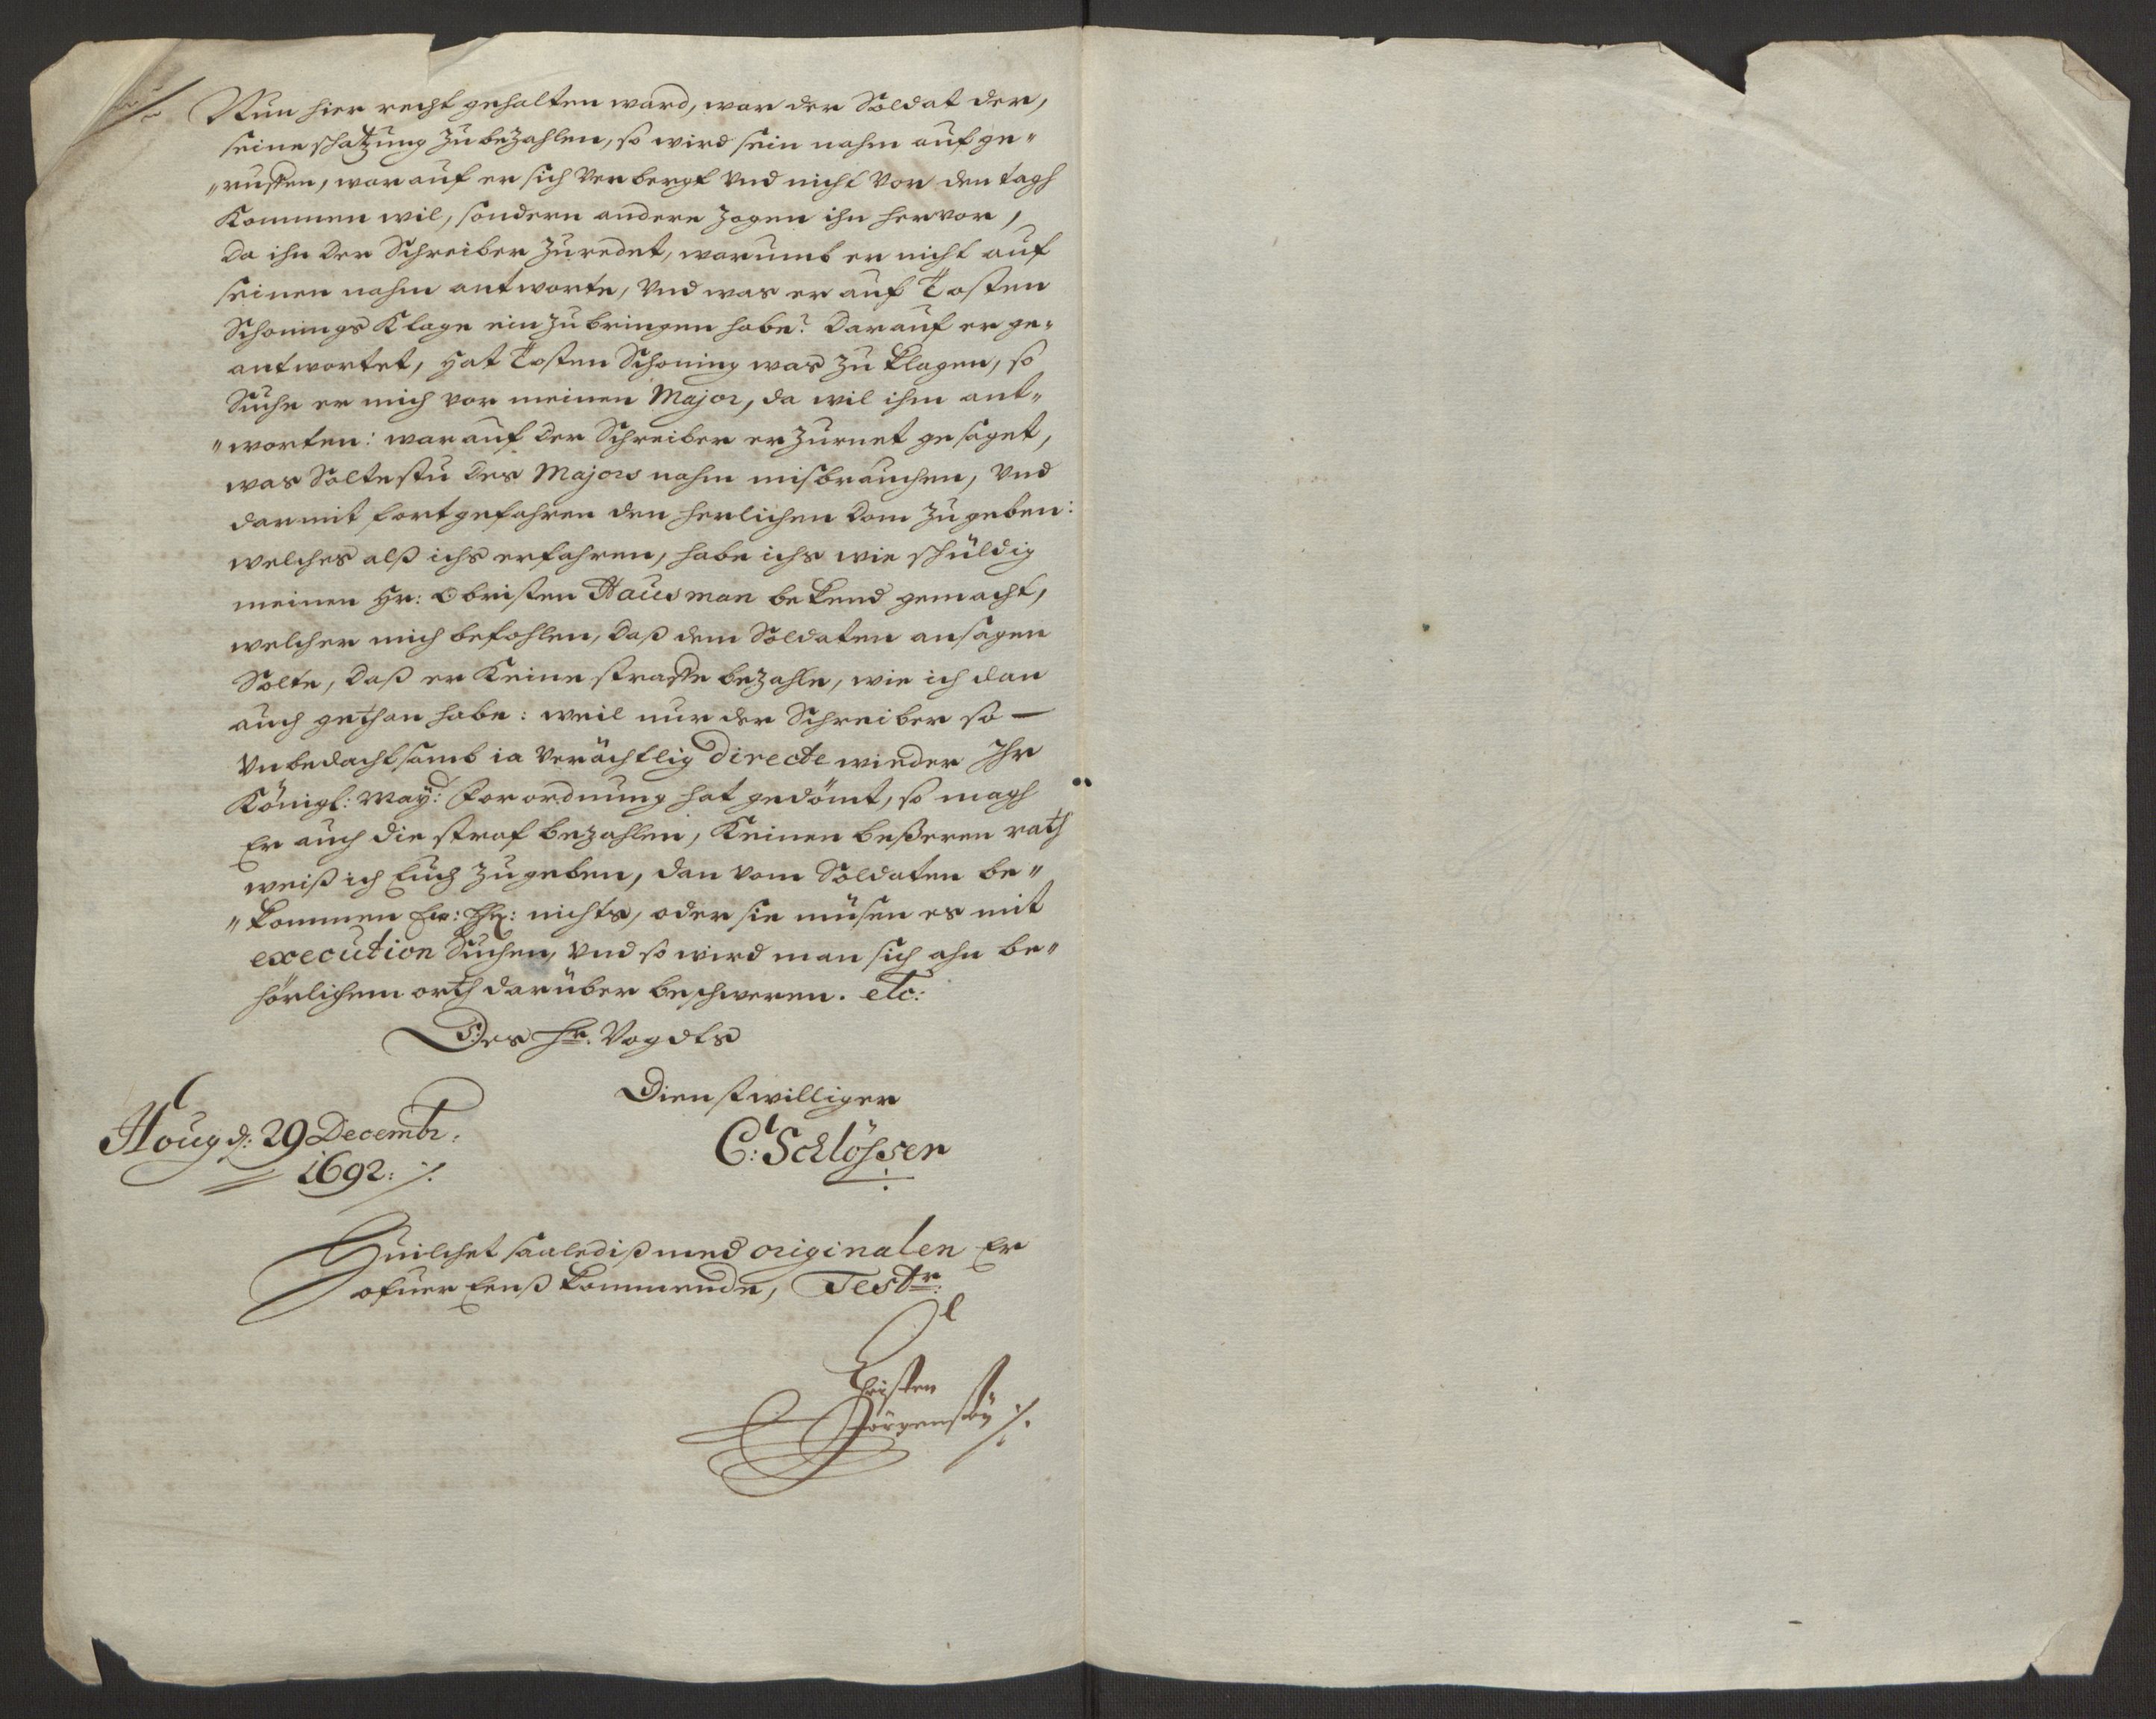 Nun hier recht gehalten ward, war der Soldat der,
seine schatzung zu bezahlen, so wird sein nahm auf ge"
"ruffen, warauf er sich verbergt Und nicht vor den tagh
Kommen wil, sondern andere zogen ihn hervor,
Da ihn der Schreiber zuredet, warumb er nicht auf
seinen nahm antworte, Und was er auf Tosten
Schonings Klage ein zu bringen habe? Darauf er ge"
antwortet, hat Tosten Schoning was zu klagen, so
Suche er mich vor meinen Major, da wil ihm ant"
"worten: warauf der Schreiber erzurnet gesaget,
was Soltestu des Majors nahm misbrauchen, Und
darmit fortgefahren den herlichen Dom zu geben:
welches alß ichs erfahren, habe ichs wie schüldig
meinen Hr: Obristen Hausman bekend gemacht,
welcher mich befohlen, daß dem Soldaten ansagen
Solte, daß er Keine straffe bezahle, wie ich dan
auch gethan habe: weil nur der Schreiber so —
Unbedachtsamb ia verächtlig directe wieder Ihr
Königl: May: Forordnung hat gedömt, so magh
Er auch die straf bezahlen, Keinen beßeren rath
weiß ich Euch zu geben, dan vom Soldaten be"
"kommen Ew: nichts, oder sie müsen es mit
execution Suchen, Und so wird man sich ahn be"
hörlichem orth darüber beschweren. etc:
Des Hr. Vogdts
Dienstwilliger
Houg d: 29 Decembr:
C: Schlösser
1692: ./.
Huilchet saaledis med originalen Er
ofuer Eenß kommende, Testr:
Christen
Jörgensøn ./.